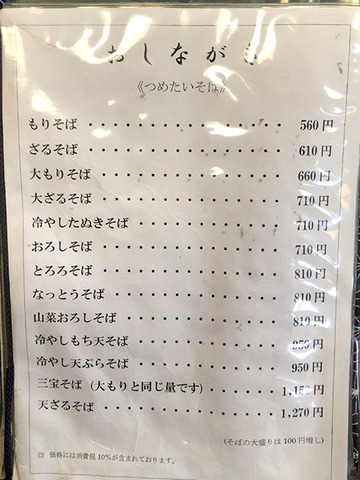 おしながき
《つめたいそば》
もりそば ・・・・・・・・・・・・・・・・ 560円
ざるそば ・・・・・・・・・・・・・・・・ 610円
大もりそば ・・・・・・・・・・・・・・・ 660円
大ざるそば ・・・・・・・・・・・・・・・ 710円
冷やしたぬきそば ・・・・・・・・・・・・ 710円
おろしそば ・・・・・・・・・・・・・・・ 710円
とろろそば ・・・・・・・・・・・・・・・ 810円
なっとうそば ・・・・・・・・・・・・・・ 810円
山菜おろしそば ・・・・・・・・・・・・・ 810円
冷やしもち天そば ・・・・・・・・・・・・ 950円
冷やし天ぷらそば ・・・・・・・・・・・・ 950円
三宝そば（大もりと同じ量です）・・・・・ 円
天ざるそば ・・・・・・・・・・・・・・・ 1,270円
（そばの大盛りは100円増し）
◎ 価格には消費税10%が含まれております。